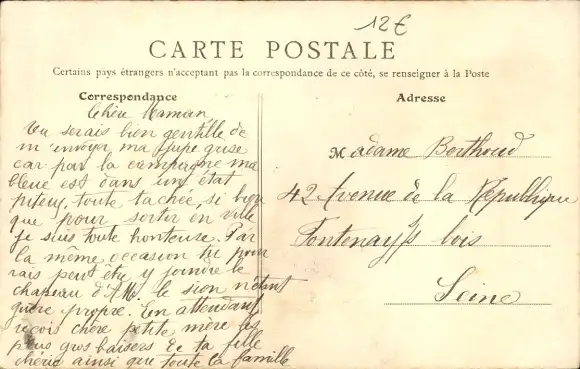 12€
CARTE POSTALE
Certains pays étrangers n'acceptant pas la correspondance de ce côté, se renseigner à la Poste
Correspondance
Chère Maman
Tu serais bien gentille de
m'envoyer ma jupe grise
car par la campagne ma
bleue est dans un état
piteux, toute tachée, si bien
que pour sortir en ville
je suis toute honteuse. Par
la même occasion tu pour
rais peut être y joindre le
chapeau d'A le sien n'étant
guère propre. En attendant
reçois chère petite mère les
plus gros baisers de ta fille
chérie ainsi que toute la famille
Adresse
Madame Berthoud
42 Avenue de la République
Fontenay s/s bois
Seine